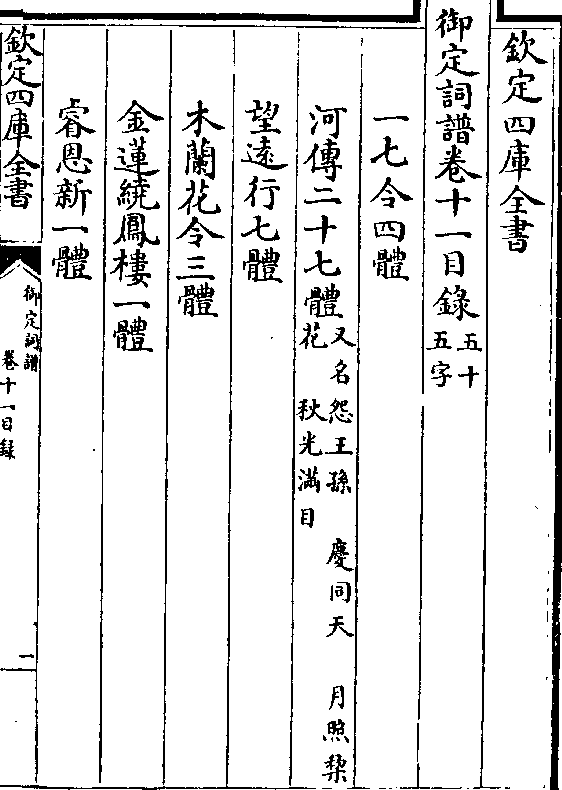 欽定四庫全書
御定詞譜卷十一目錄五十五字
一七令四體
河傳二十七體又名怨王孫 慶同天 月照棃花 秋光滿目
望遠行七體
木蘭花令三體
金蓮繞鳳樓一體
睿恩新一體
欽定四庫全書
御定詞譜
卷十一目録
一